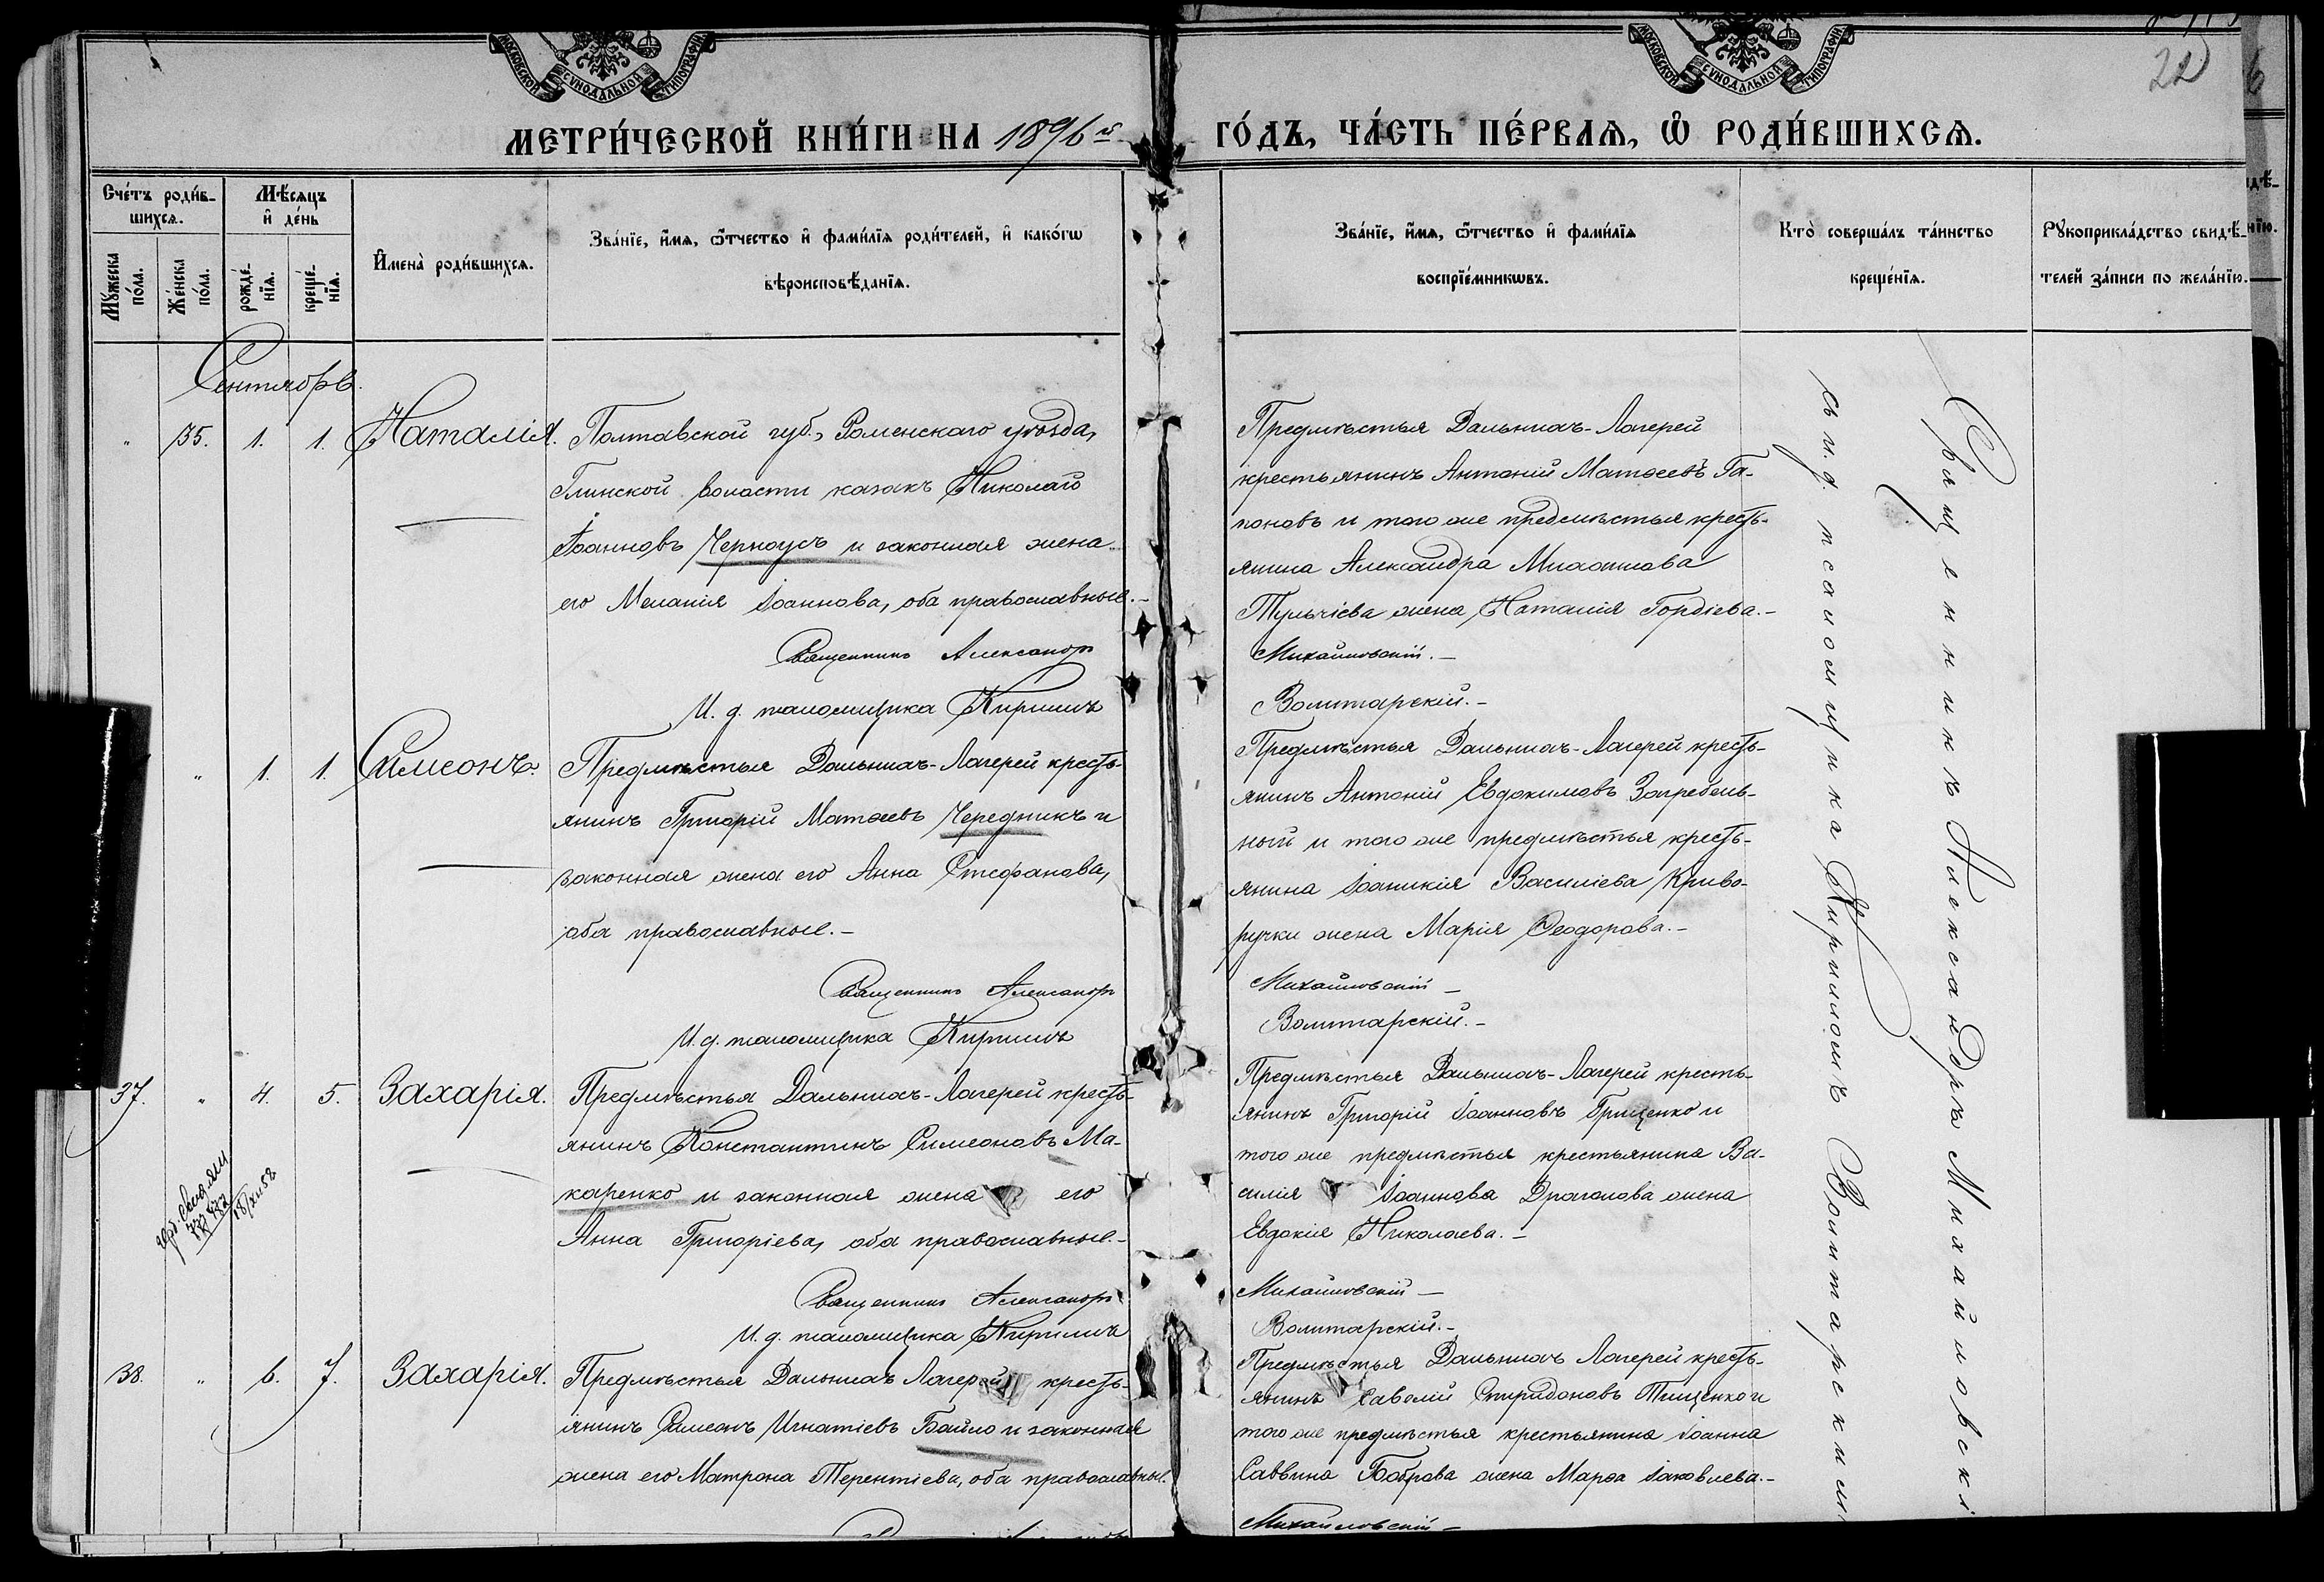 МОСКОВСКОЙ СѴНОДАЛЬНОЙ ТИПОГРАФІИ
МОСКОВСКОЙ СѴНОДАЛЬНОЙ ТИПОГРАФІИ
22
6
МЕТРИ́ЧЕСКОЙ КНИ́ГИ НА 1896 й ГО́ДЪ, ЧА́СТЬ ПЕ́РВАѦ, Ѽ РОДИ́ВШИХСѦ.
Сче́тъ роди́в-
шихсѧ.
Мꙋ́жеска по́ла.
Же́нска по́ла.
Мѣ́сѧцъ
и҆ де́нь
рожде́-нїѧ.
креще́-нїѧ.
И҆мена̀ роди́вшихсѧ.
Зва́нїе, и҆́мѧ, ѻ҆́тчество и҆ фами́лїѧ роди́телей, и҆ како́гѡ
вѣроисповѣ́данїѧ.
Зва́нїе, и҆́мѧ, ѻ҆́тчество и҆ фами́лїѧ
воспрїе́мникѡвъ.
Кто̀ соверша́лъ та́инство
креще́нїѧ.
Рꙋкоприкла́дство свидѣ́-
телей за́писи по жела́нїю.
Сентябрь.
" 35. 1. 1. Наталія.
Полтавской губ., Роменскаго уѣзда,
Глинской волости казакъ Николай
Іоанновъ Черноусъ и законная жена
его Меланія Іоаннова, оба православные.-
Священникъ Александръ
И. д. псаломщика Кириллъ
Предмѣстья Дальнихъ-Лагерей
крестьянинъ Антоній Матѳеевъ Га-
поновъ и того же предмѣстья кресть-
янина Александра
жена Наталія Гордіева.-
Михайловскій.-
Волитарскій.-
" 1. 1. Симеонъ.
Предмѣстья Дальнихъ-Лагерей кресть-
янинъ Григорій Матѳеевъ Чередникъ и
законная жена его Анна Стефанова,
оба православные.-
Священникъ Александръ
И. д. псаломщика Кириллъ
Предмѣстья Дальнихъ-Лагерей кресть-
янинъ Антоній Евдокимовъ Загребель-
ный и того же предмѣстья кресть-
янина Іоаникія Василіева Криво-
ручки жена Марія Ѳеодорова.-
Михайловскій-
Волитарскій.-
37. " 4. 5. Захарія.
Предмѣстья Дальнихъ-Лагерей кресть-
янинъ Константинъ Симеоновъ Ма-
каренко и законная жена его
Анна Григоріева, оба православные.-
Священникъ Александръ
И. д. псаломщика Кириллъ
Предмѣстья Дальнихъ-Лагерей кресть-
янинъ Григорій Іоанновъ Грищенко и
того же предмѣстья крестьянина Ва-
силія Іоаннова Драголова жена
Евдокія Николаева.-
Михайловскій-
Волитарскій.-
38. " 6. 7. Захарія.
Предмѣстья Дальнихъ Лагерей кресть-
янинъ Симеонъ Игнатіевъ Байло и законная
жена его Матрона Терентіева, оба православные.
Предмѣстья Дальнихъ Лагерей кресть-
янинъ Савелій Спиридоновъ Тищенко и
того же предмѣстья крестьянина Іоанна
Саввина Боброва жена Марѳа Іаковлева.-
Михайловскій-
Священникъ Александръ Михайловскі
съ и. д. псаломщика Кирилломъ Волитарским